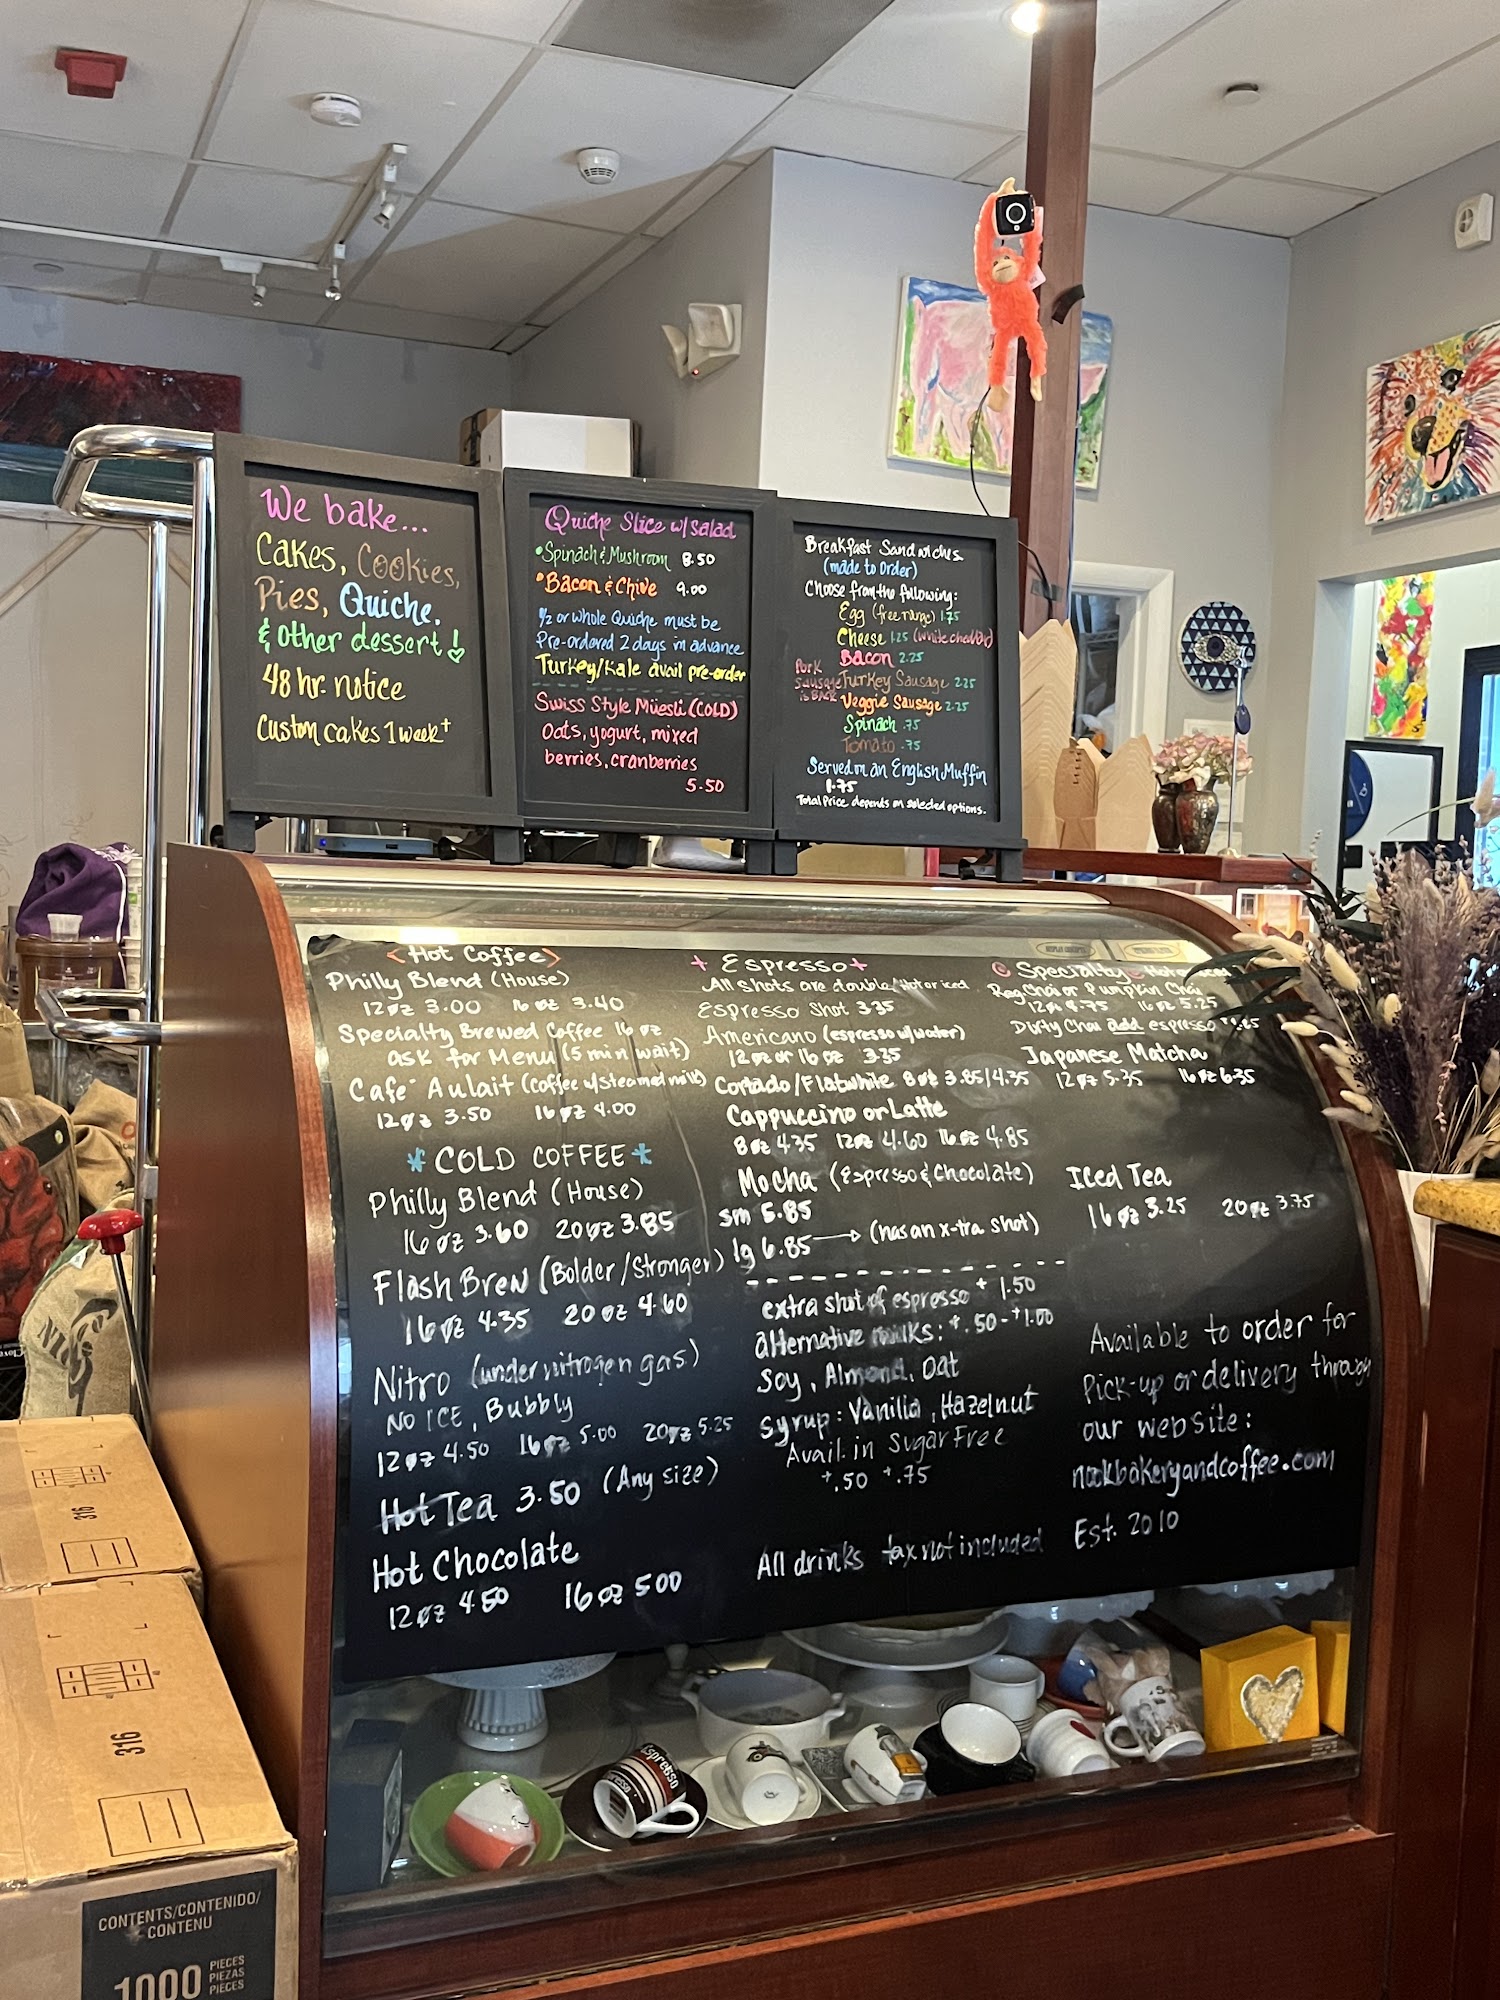 We bake...
Cakes, Cookies,
Pies, Quiche.
& other dessert!
48 hr. notice
Custom cakes 1 week+
Quiche Slice w/salad
•Spinach & Mushroom 8.50
•Bacon & Chive 9.00
1/2 or whole Quiche must be
Pre-ordered 2 days in advance
Turkey/Kale avail pre-order
Swiss Style Müesli (COLD)
Oats, yogurt, mixed
berries, cranberries
5.50
Breakfast Sandwiches
(made to Order)
Choose from the following:
Egg (free range) 1.75
Cheese 1.25 (white cheddar)
Bacon 2.25
Pork
Sausage
is BACK
Turkey Sausage 2.25
Veggie Sausage 2.25
Spinach .75
Tomato .75
Served on an English Muffin
1.75
Total Price depends on selected options.
Hot Coffee
Philly Blend (House)
12oz 3.00 16 oz 3.40
Specialty Brewed Coffee 16 oz
ask for Menu (5 min wait)
Cafe' Aulait (coffee w/steamed milk)
12oz 3.50 16oz 4.00
* COLD COFFEE *
Philly Blend (House)
16oz 3.60 20oz 3.85
Flash Brew (Bolder/Stronger)
16oz 4.35 20oz 4.60
Nitro (under nitrogen gas)
NO ICE, Bubbly
12oz 4.50 16oz 5.00 20oz 5.25
Hot Tea 3.50 (Any size)
Hot Chocolate
12oz 4.50 16oz 500
+ Espresso +
All shots are double/Hot or iced
Espresso Shot 3.35
Americano (espresso w/water)
12oz or 16oz 3.35
Cortado/Flatwhite 8oz 3.85/4.35
Cappuccino or Latte
8oz 4.35 12oz 4.60 16oz 4.85
Mocha (Espresso & Chocolate)
sm 5.85
lg 6.85 → (has an x-tra shot)
extra shot of espresso + 1.50
alternative milks: +.50-+1.00
Soy, Almond, Oat
Syrup: Vanilla, Hazelnut
Avail. in Sugar Free
+.50 +.75
All drinks tax not included
Specialty Hot or iced
Reg Chai or Pumpkin Chai
12oz 4.75 16oz 5.25
Dirty Chai add espresso
Japanese Matcha
12oz 5.35 16oz 6.35
Iced Tea
16oz 3.25 20oz 3.75
Available to order for
Pick-up or delivery through
our website:
nookbakeryandcoffee.com
Est. 2010
Espresso
316
316
CONTENTS/CONTENIDO/
CONTENU
1000 PIECES
PIEZAS
PIÈCES